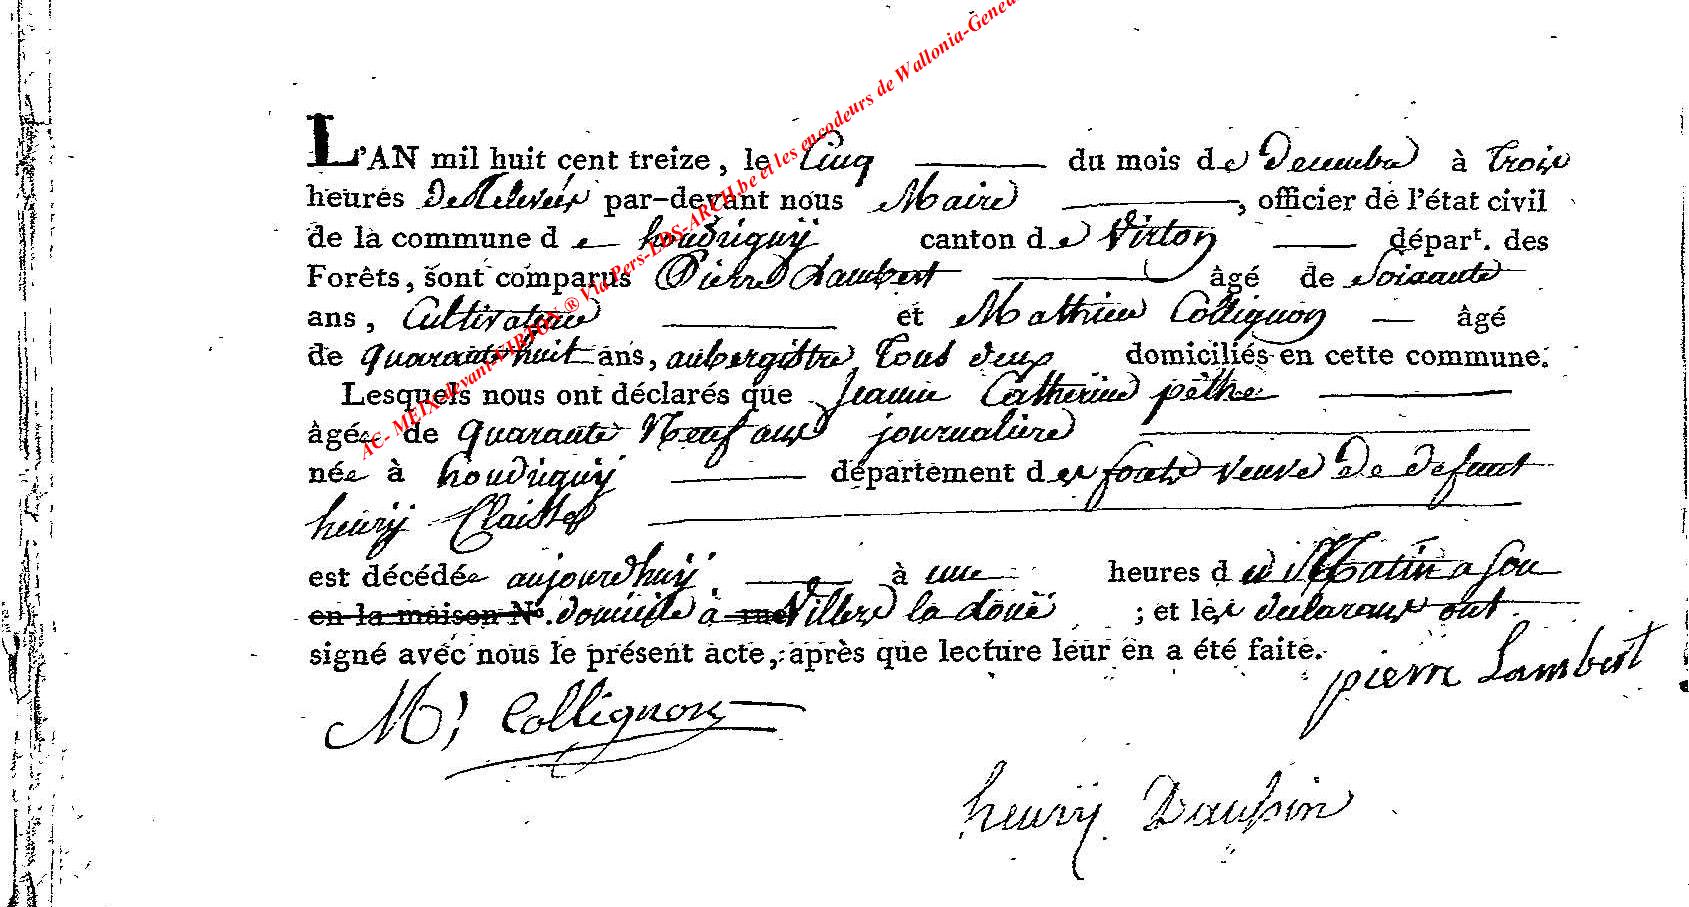 L'AN mil huit cent treize, le Cinq du mois de Decembre à trois
heures de Relevées par-devant nous Maire, officier de l'état civil
de la commune de houdrigny canton de Virton départ. des
Forêts, sont comparus Pierre Lambert âgé de Soixante
ans, Cultivateur et Mathieu Collignon âgé
de quarante huit ans, aubergistre, tous deux domiciliés en cette commune.
Lesquels nous ont déclarés que Jeanne Catherine pethe
âgée de quarante Neuf ans journaliere
née à houdrigny département des forets veuve de defunt
henry Claisse
est décédée aujourdhuy à une heures du Matin a son
en la maison N°. domicile à rue Villers la loue ; et les declarans ont
signé avec nous le présent acte, après que lecture leur en a été faite.
pierre Lambert
M; Collignon
henry
AC- MEIX-devant-VIRTON ® Via Pers-LDS-ARCH.be et les encodeurs de Wallonia-Genea